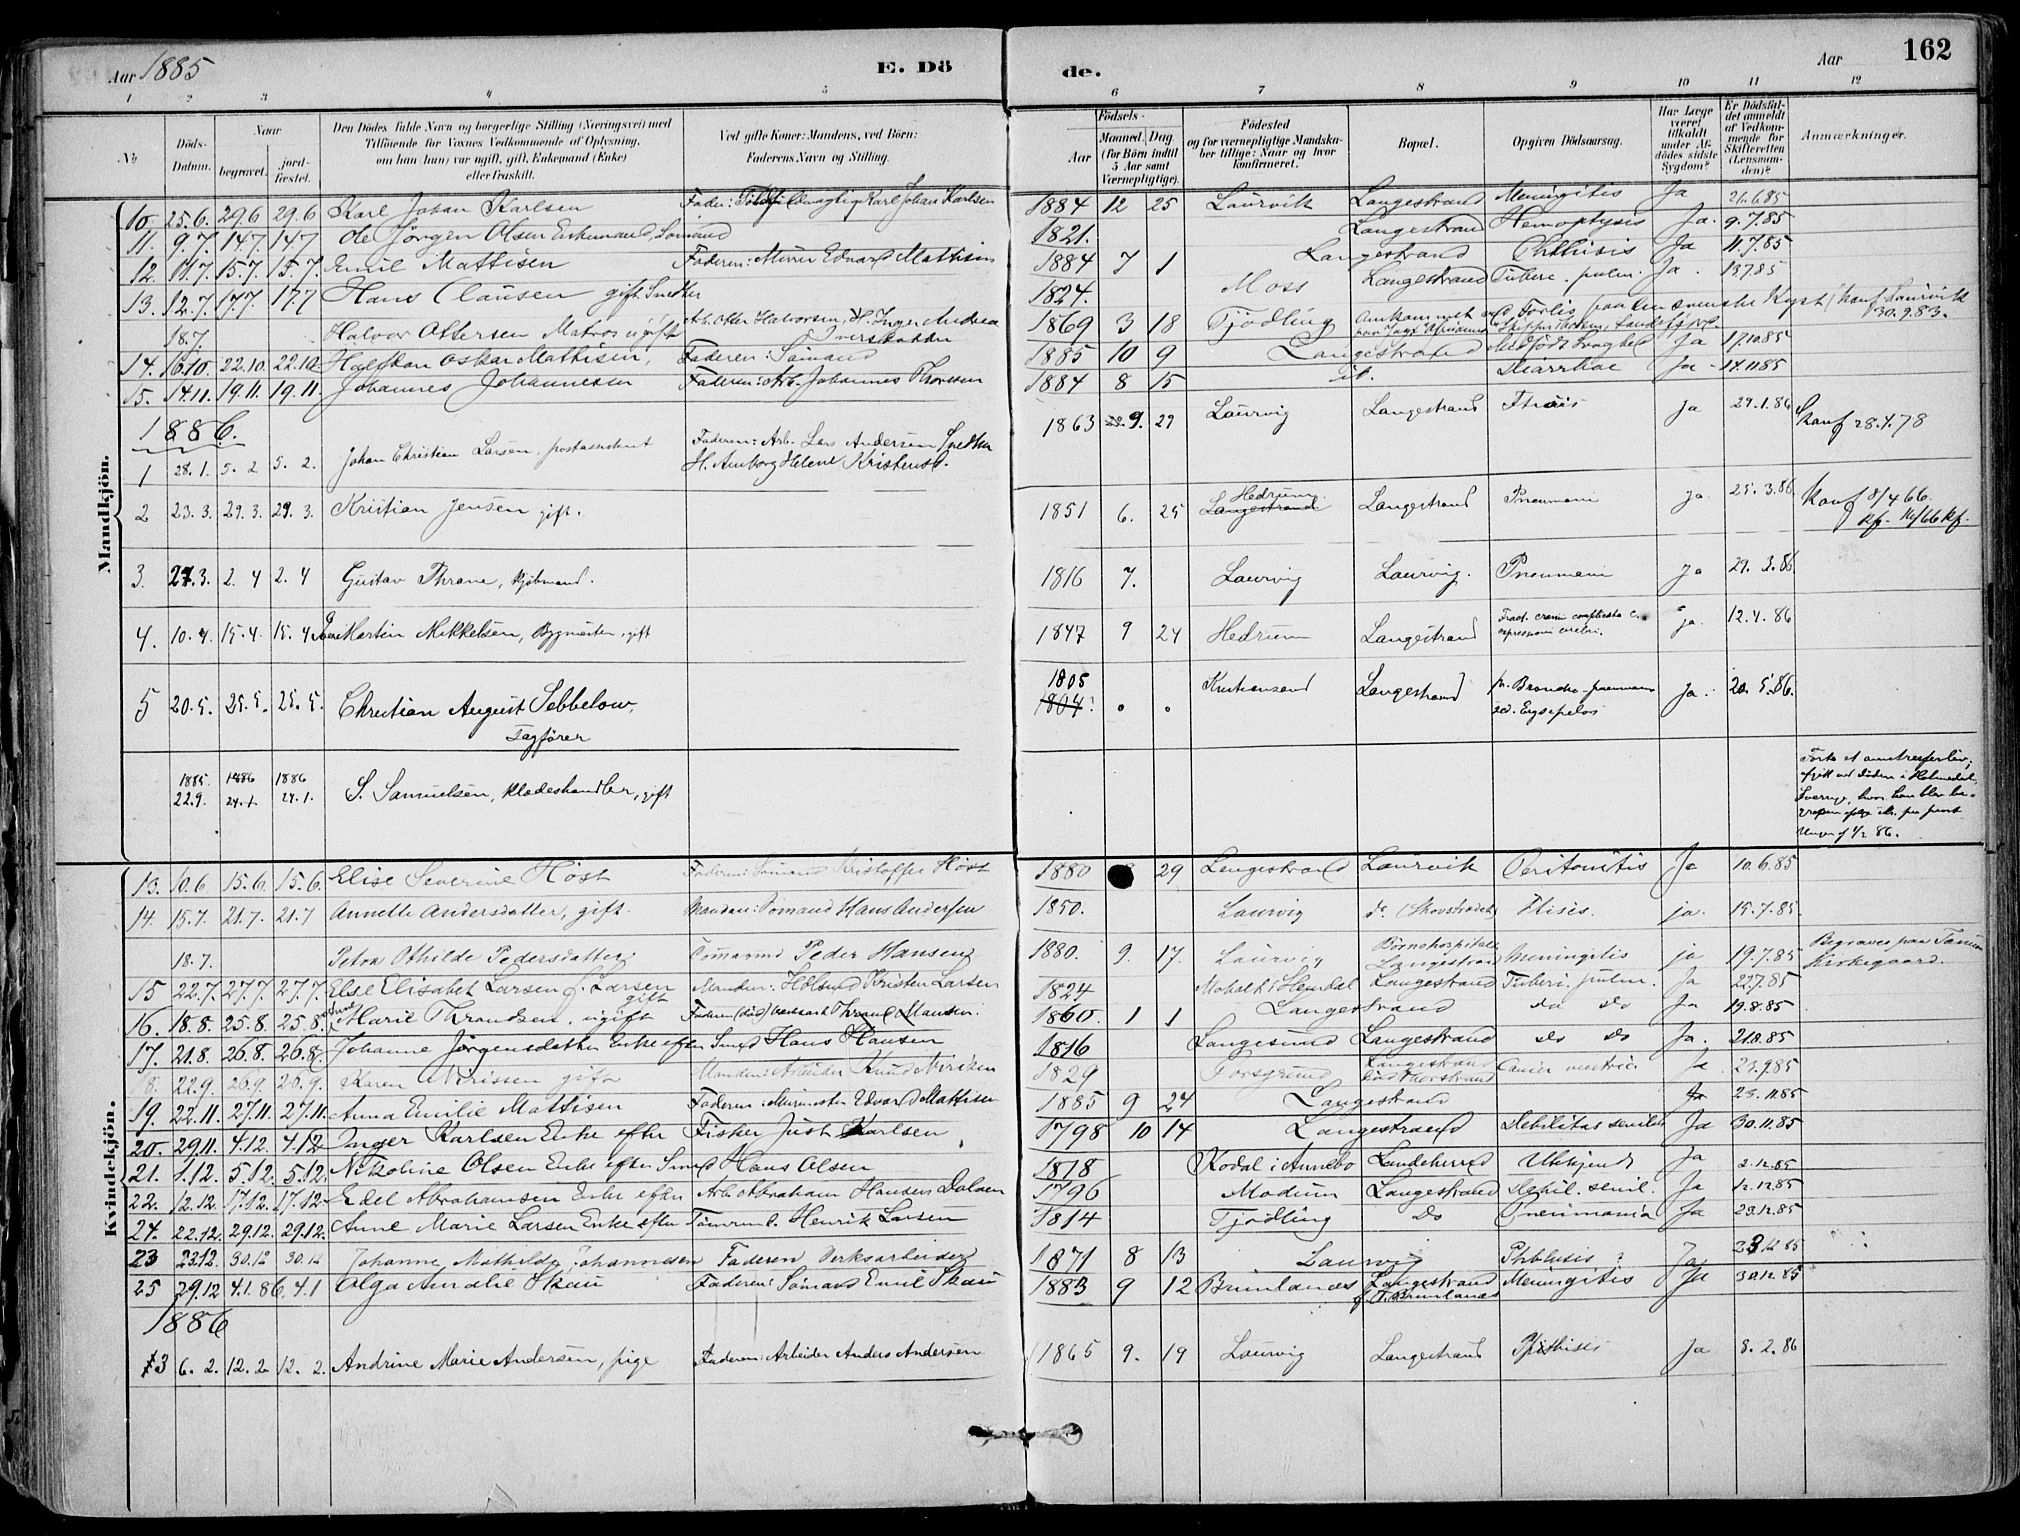 Aar 1885 E. Dö de. Aar 162
1 2 3 4 5 6 7 8 9 10 11 12
No. Döds-Datum. Naar begravet. jordfæstet. Den Dödes fulde Navn og borgerlige Stilling (Næringsvei) med Tilföiende for Voxnes Vedkommende af Oplysning, om han (hun) var ugift, gift, Enkemand (Enke) eller fraskilt. Ved gifte Koner: Mandens, ved Börn: Faderens Navn og Stilling. Födsels- Aar Maaned. Dag (for Börn indtil 5 Aar samt Værnepligtige). Födested og for værnepligtige Mandskaber tillige: Naar og hvor konfirmeret. Bopæl. Opgiven Dödsaarsag. Har Læge været tilkaldt under Afdödes sidste Sygdom? Er Dödsfaldet anmeldt af Vedkommende for Skifteretten (Lensmanden)? Anmærkninger.
Mandkjön.
10. 25.6. 29.6 29.6 Karl Johan Karlsen Fader: Karl Johan Karlsen 1884 12 25 Laurvik Langestrand Meningitis Ja 26.6.85
11. 9.7. 14.7. 14.7 Ole Jörgen Olsen Enkemand, Sömand 1821. Langestrand Hemoptysis Ja. 9.7.85
12. 11.7. 15.7. 15.7. Emil Mattisen Faderen: Murer Edvard Mattisen 1884 7 1 Langestrand Phthisis Ja 11.7.85
13. 12.7. 17.7. 17.7 Hans Clausen gift. Snedker 1824. Moss Langestrand Tuberc. pulm. Ja. 13.7.85
18.7. Halvor Ottersen Matros ugift Arb. Otter Halvorsen, H. Inger Andrea Iversdatter 1869 3 18 Tjödling Omkommet ved Forlis paa den svenske Kyst Konf. Laurvik 30.9.83.
14. 16.10. 22.10. 22.10. Halfdan Oskar Mattisen, Faderen: Sömand 1885 10 9 Langestrand Medfödt Svaghed Ja 17.10.85
15. 14.11. 19.11. 19.11. Johannes Johannessen Faderen: Arb. Johannes Thoresen 1884 8 15 id. Diarrhoe Ja - 14.11.85
1886.
1 28.1. 5.2 5.2. Johan Christian Larsen, postassistent Faderen: Arb. Lars Andersen Snedker H. Amborg Helene Kristensd. 1863 9. 29 Laurvig Langestrand Ftisis ja 29.1.86 Konf 28.4.78
2 23.3. 29.3. 29.3. Kristian Jensen gift. 1851 6. 25 Hedrum Langestrand Langestrand Pneumoni ja. 25.3.86 Konf 8/4 66.
3. 27.3. 2.4 2.4 Gustav Thrane, kjöbmand. 1816 7. Laurvig Laurvig. Pneumoni ja 29.3.86
4. 10.4. 15.4. 15.4 Martin Mikkelsen, Bygmester, gift 1847 9 24 Hedrum Langestrand Fract. cranii complicata c. ja. 12.4.86
5 20.5. 25.5. 25.5. Christian August Sebbelow, Fagförer 1805 1804? Kristiansand Langestrand Broncho-pneumoni Ja. 20.5.86.
1885 22.9. 1886 24.1. 1886 24.1. S. Samuelsen, Klædeshandler, gift
Kvindekjön.
13. 10.6. 15.6. 15.6. Elise Severine Höst Faderen: Sömand Kristoffer Höst 1880 29 Langestrand Laurvik Peritonitis Ja 10.6.85
14. 15.7. 21.7. 21.7 Annette Andersdatter, gift. Manden: Sömand Hans Andersen 1850. Laurvig do Ftisis. ja. 15.7.85.
18.7. Petra Othilde Pedersdatter Tömmermd Peder Hansen 1880. 9. 17. Laurvig Börnehospitalet Langestrand Meningitis ja 19.7.85 Begraves paa Tanum Kirkegaard.
15 22.7. 27.7. 27.7. Else Elisabet Larsen f. Larsen gift Manden: Kristen Larsen 1824 Langestrand Tuberc. pulm. Ja 22.7.85
16. 18.8. 25.8. 25.8. Marie Thrandsen, ugift 1860. 1 1 Langestrand do do Ja 19.8.85
17. 21.8. 26.8. 26.8 Johanne Jörgensdatter Enke efter Smed Hans Hansen 1816 Langesund Langestrand do do Ja. 21.8.85
22.9. 26.9. 26.9. Karen gift Manden: Arbeider Knud 1829 Porsgrund Langestrand Cancer ventric. Ja 23.9.85
19. 22.11. 27.11. 27.11. Anna Emilie Mattisen Faderen: Murmester Edvard Mattisen 1885 9 24 Langestrand Ja 23.11.85
20. 29.11. 4.12. 4.12 Inger Karlsen Enke efter Fisker Just Karlsen 1798 10 14 Langestrand Debilitas senilis Ja 30.11.85
21. 1.12. 5.12. 5.12. Nikoline Olsen Enke efter Smed Hans Olsen 1818 Kodal i Annebo Landeherred Ubekjendt Ja 2.12.85
22. 12.12. 17.12. 17.12. Edel Abrahamsen Enke efter Arb. Abraham Hansen Dalven 1796 Modum Langestrand Debil. senil. Ja 12.12.85
24. 22.12. 29.12. 29.12. Anne Marie Larsen Enke efter Tömrmd. Henrik Larsen 1814 Tjödling Do Pneumonia Ja 23.12.85
23 23.12. 30.12 30.12 Johanne Mathilde Johannesen Faderen Verksarbeider 1871 8 13 Laurvig Phthisis? Ja 23.12.85
25 29.12 4.1.86. 4.1 Olga Amalie Skau Faderen: Sömand Emil Skau 1883 9 12 Brunlanes Langestrand Meningitis Ja 30.12.85
1886
3 6.2. 12.2. 12.2. Andrine Marie Andersen, pige Faderen: Arbeider Anders Andersen 1865 9. 19 Laurvig Langestrand Phthisis Ja 8.2.86